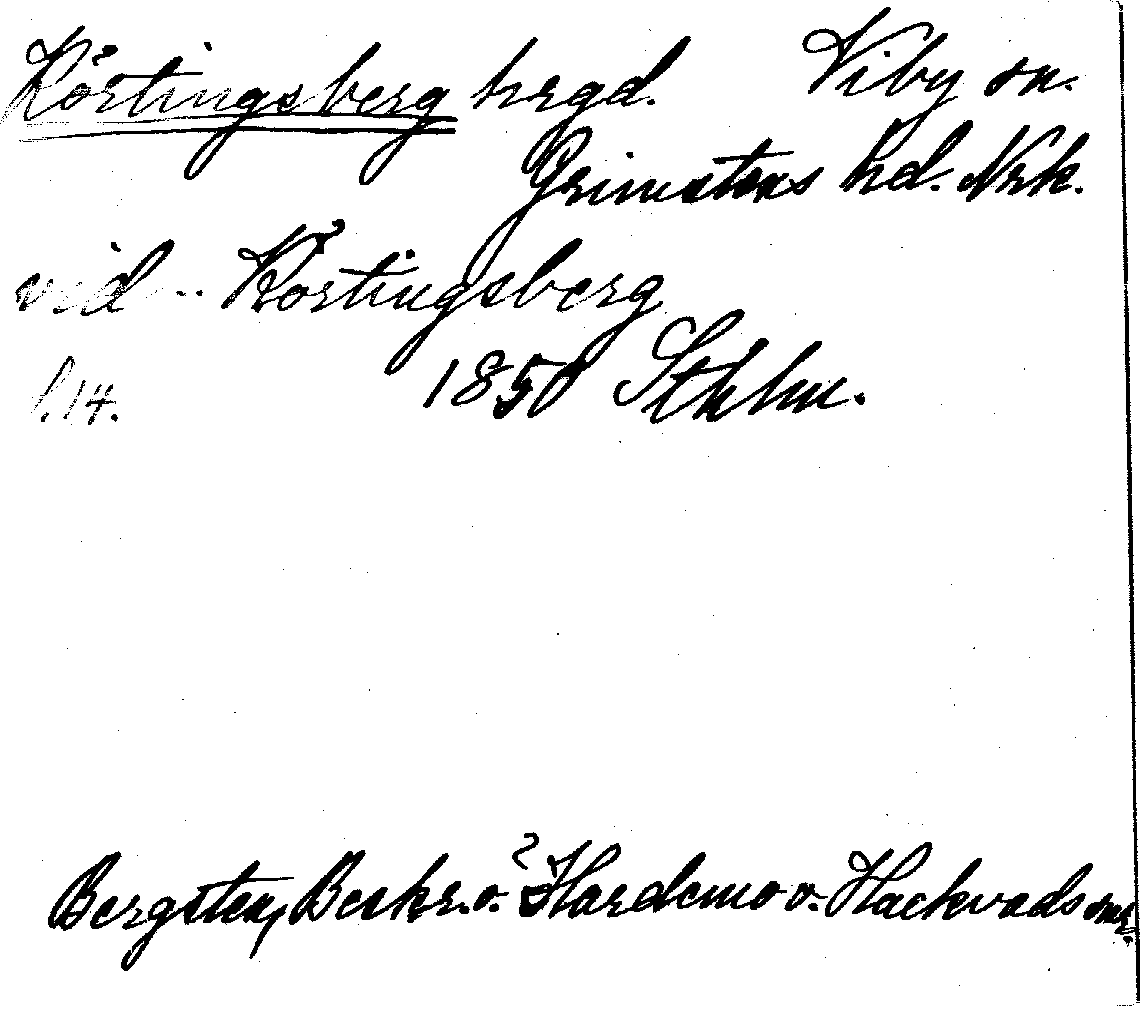 Körtingsberg hrgd. Viby sn.
Grimstens hd. Nrk.
vid .. Körtingsberg
1850 Sthlm.
Bergsten, Beskr. o. Hardemo o. Hackvads snr.